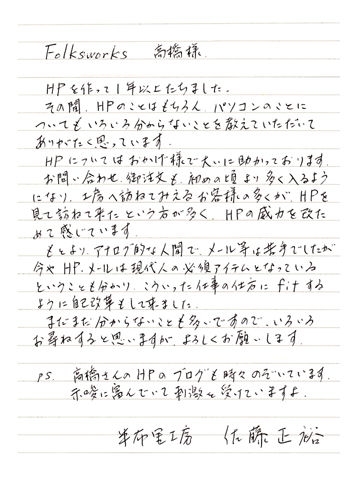 Folksworks 高橋様
HPを作って1年以上たちました。
その間、HPのことはもちろん、パソコンのことに
ついてもいろいろ分からないことを教えていただいて
ありがたく思っています。
HPについてはおかげ様で大いに助かっております。
お問い合わせ、御注文も、初めの頃より多く入るよう
になり、工房へ訪ねてみえるお客様の多くが、HPを
見て訪ねて来たという方が多く、HPの威力を改た
めて感じています。
もとより、アナログ的な人間で、メール等は苦手でしたが
今やHP、メールは現代人の必須アイテムとなっている
ということも分かり、こういった仕事の仕方にfitする
ように自己改革もして来ました。
まだまだ分からないことも多いですので、いろいろ
お尋ねすると思いますが、よろしくお願いします。
ps. 高橋さんのHPのブログも時々のぞいています。
示唆に富んでいて刺激を受けていますよ。
半布里工房 佐藤正裕